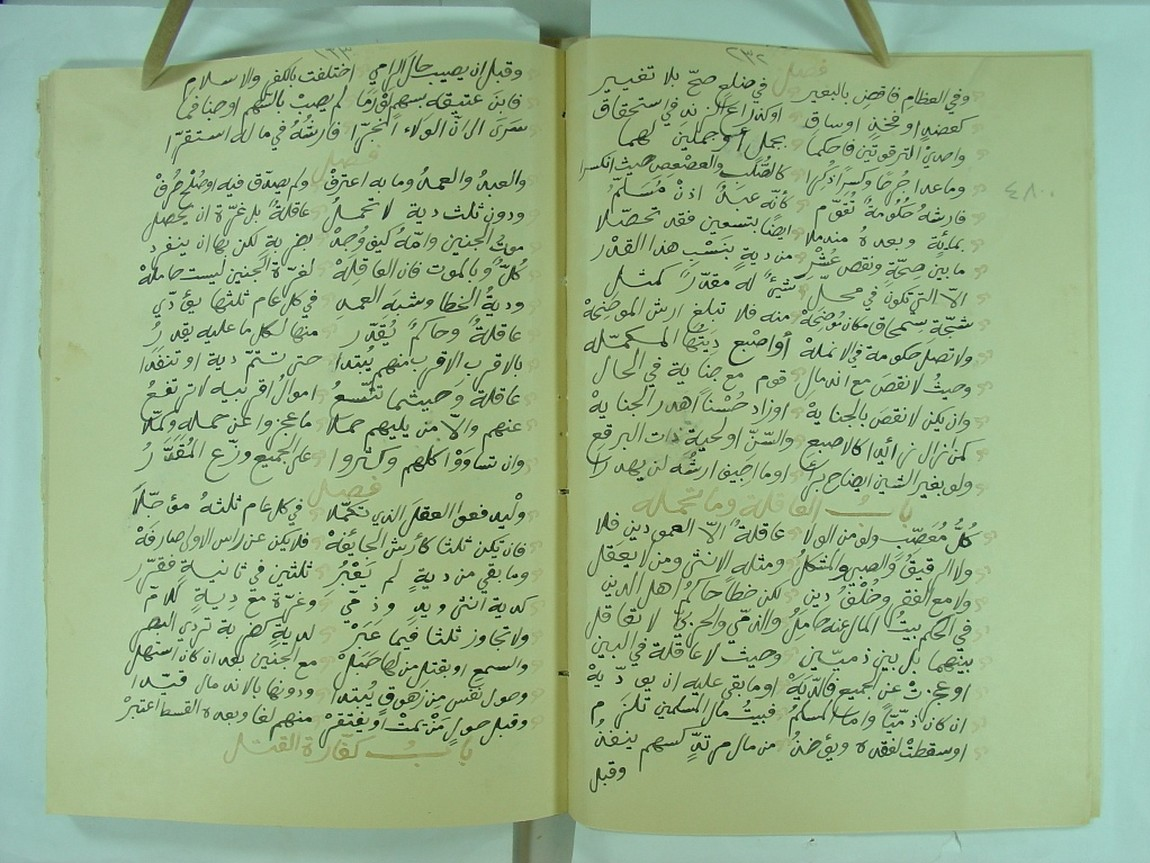 ٢٣٢
فصل
وفي العظام فاقض بالبعير في ضلع صح بلا تغيير
كعضد او فخذ او ساق او كذراع الزند في استحقاق
واحدى الترقوتين فاحكما بجمل أو جملين لهما
وما عدا جرحا وكسرا ذكرا كالصلب والعصعص حيث انكسرا
فارشه حكومة تقوم كأنه عبد اذن مسلم
وبعده مندملا ايضا بتسعين فقد تحصلا
ما بين صحة ونقص عشر من دية بنسب هذا القدر
الا التي تكون في محل شيئا له مقدرا كمثل
شجة سمحاق مكان موضحة منه فلا تبلغ ارش الموضحة
ولا تصل حكومة في الانملة أو اصبع ديتها المكملة
وحيث لا نقص مع اندمال قوم مع جناية في الحال
وان يكن لا نقص بالجناية او زاد حسنا اهدر الجناية
كاصبع والسن او لحية ذات البرقع
ولو بغير الشين ايضاح برا او ما اجيف ارشه لن يهدرا
باب العاقلة وما تحمله
كل معصب ولو من الولا عاقلة الا العمودين فلا
ولا الرقيق والصبي والمشكل ومثله الانثى ومن لا يعقل
ولا مع الفقر وخلف دين لكن خطا حاكم اهل الدين
في الحكم بيت المال عنه حامل والذمي والحربي لا تعاقل
بينهما بل بين ذميين وحيث لا عاقلة في البين
او عجزت عن الجميع فالدية او ما بقي عليه ان يؤديه
ان كان ذميا واما المسلم فبيت مال المسلمين تلزم
او سقطت لفقده ويؤخذ من مال مرتد كسهم ينفذ
وقبل
٢٣٣
وقبل ان يصيب حال الرامي اختلفت بالكفر والاسلام
فابن عتيقه بسهم لو رمى لم يصب بالسهم اوجنا فما
سرى الى ان الولاء انجرا فارشه في ماله استقرا
فصل
والعبد والعمد وما به اعترف ولم يصدق فيه او صلح عرف
ودون ثلث دية لا تحمل عاقلة بل غرة ان يحصل
موت الجنين وامه كيف وجد بضربة لكن بها ان ينفرد
بالموت فان العاقلة لغرة الجنين ليست حاملة
ودية الخطا وشبه العمد في كل عام ثلثها يؤدي
عاقلة وحاكم يقدر منها لكل ما عليه يقدر
بالاقرب الاقرب منهم يبتدا حتى تتم دية او تنفدا
عاقلة وحيثما تتسع اموال اقربيه لا ترتفع
عنهم والا من يليهم حملا ما عجزوا عن حمله وكملا
وان تساووا كلهم وكثروا على الجميع وزع المقدر
فصل
وليدفعوا العقل الذي تكملا في كل عام ثلثه مؤجلا
فان تكن ثلثا كأرش الجائفة فلا يكن عن راس الاول صارفة
وما بقي من دية لم يعتبر ثلثين في ثانية فقر
كدية انثى ويد وذمي وغرة مع دية كلام
ولا تجاوز ثلثا فيما عبر لدية كضربة تردي البصر
والسمع او بقتل من لها حبل مع الجنين بعد ان كان استهل
وحول نفس من زهوق يبتدا ودونها بالاندمال قيدا
وقبل حول من يمت او يفتقر منهم لغا وبعده القسط اعتبر
باب كفارة القتل